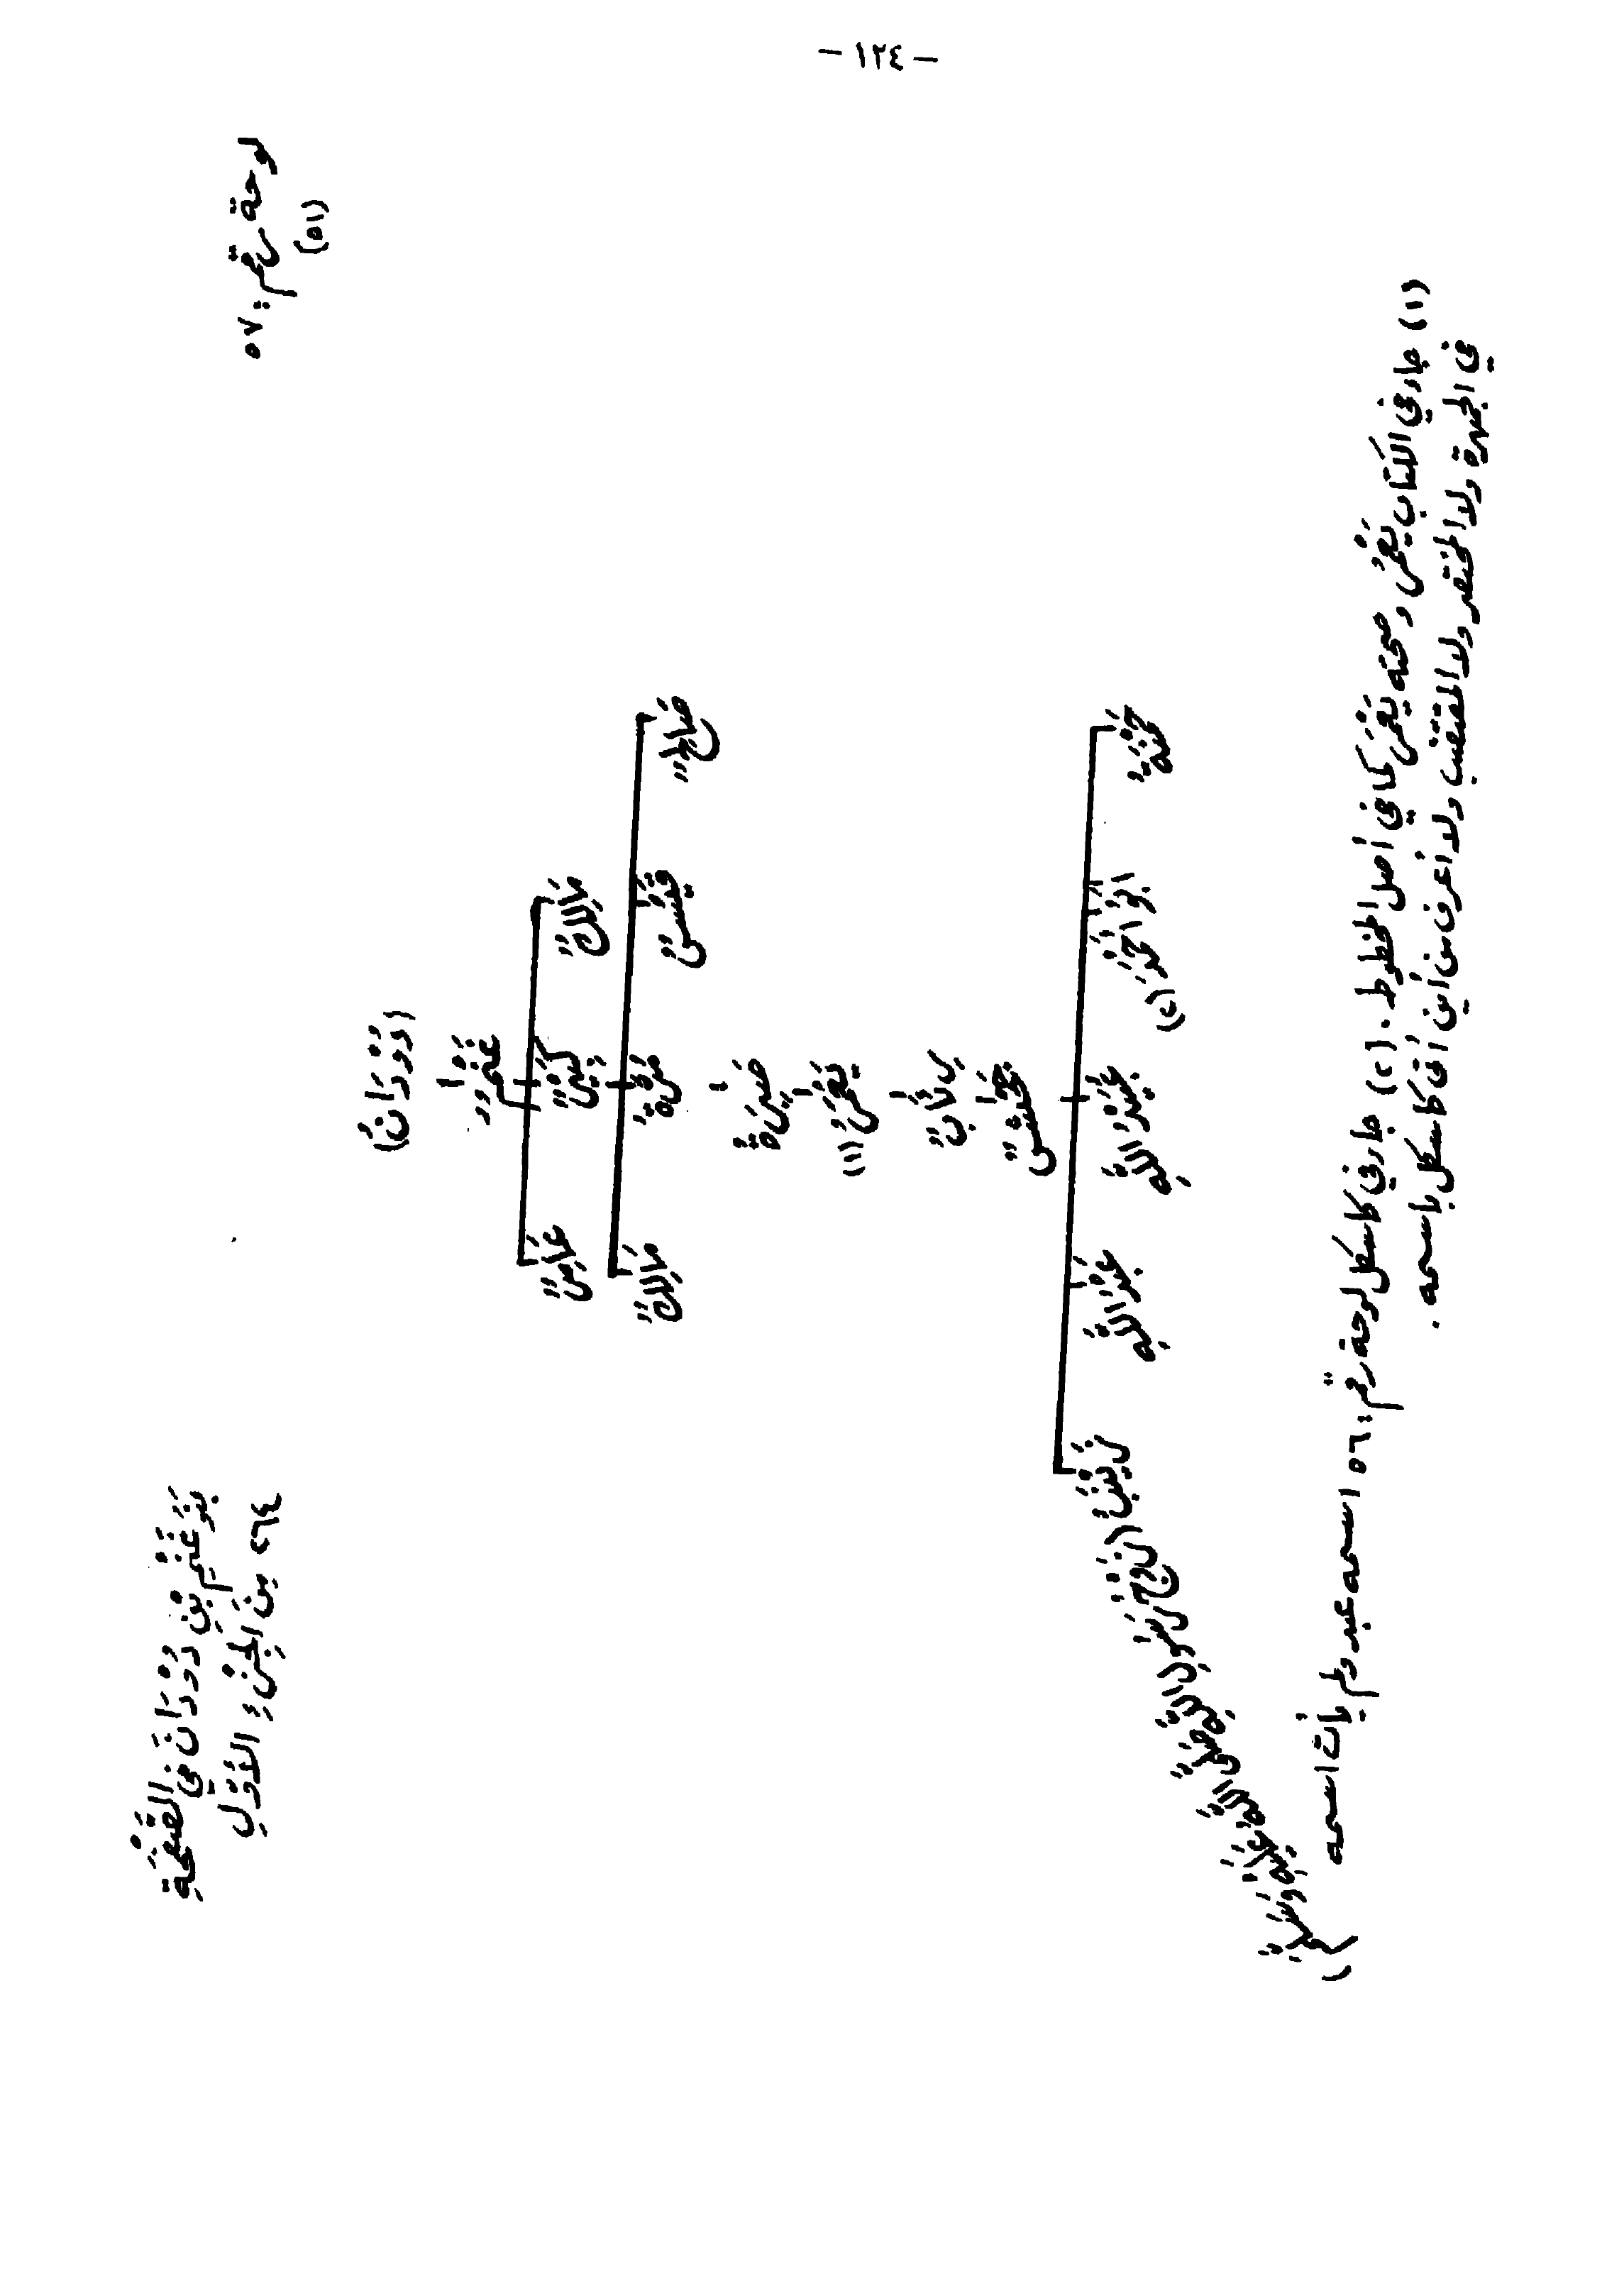 - ١٢٤ -
لوحة رقم: ٥٧
(٥١)
بَنُو غَنْمِ بْنِ دُوْدَانَ فِي الصَّفْحَةِ
٢٦٤ مِنَ الجُزْءِ الأَوَّلِ
(دُوْدَانُ)
غَنْمٌ
مَالِكٌ
كَبِيْرٌ
عَامِرٌ
صَالِحٌ
قَيْسٌ
مُرَّةُ
مَالِكٌ
صَبِرَةُ
يَعْمَرُ (١)
رِئَابٌ
جَحْشٌ
حَمْنَةُ
أَبُو أَحْمَدَ (٢)
عُبَيْدُ اللَّهِ
عَبْدُ اللَّهِ
زَيْنَبُ (زَوْجُ رَسُولِ اللَّهِ صَلَّى اللَّهُ عَلَيْهِ وَسَلَّمَ)
(١) جاء في الكتاب يَعْمُر وصحته يَعْمَر كما في أصل المخطوط. (٢) جاء في كاسكل لوحة رقم: ٥٦ اسمه عبد ولم يأت اسمه
في الجمهرة ولا المختصر ولا المقتضب ولا أعرف من أين أتى كاسكل باسمه.